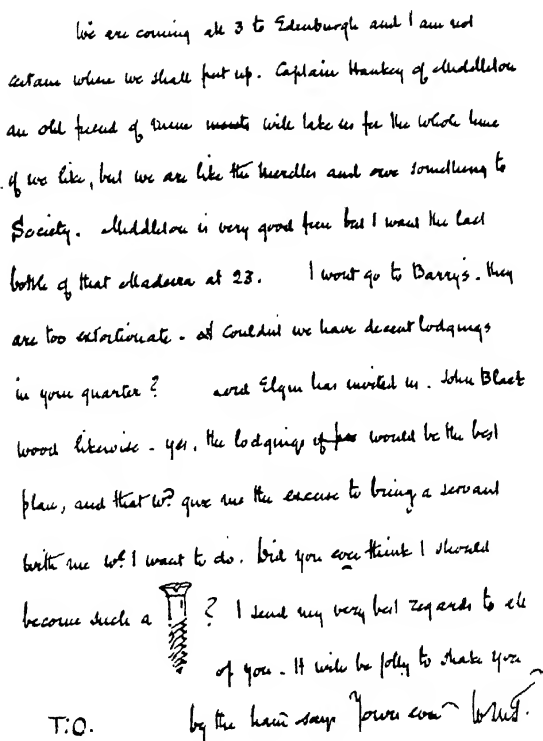 We are coming all 3 to Edenburgh and I am not
certain where we shall put up. Captain Hankey of Middleton
an old friend of mine will take us for the whole time
if we like, but we are like the Merdles and owe something to
Society. Middleton is very good fun but I want the last
bottle of that Madeira at 23. I wont go to Barry's. they
are too extortionate - Couldn't we have decent lodgings
in your quarter? Lord Elgin has invited us. John Black
wood likewise - yes, the lodgings would be the best
plan, and that wd. give me the excuse to bring a servant
with me wh. I want to do. Did you ever think I should
become such a ? I send my very best regards to all
of you - It will be jolly to shake you
by the hand says Yours ever WMT.
T.O.